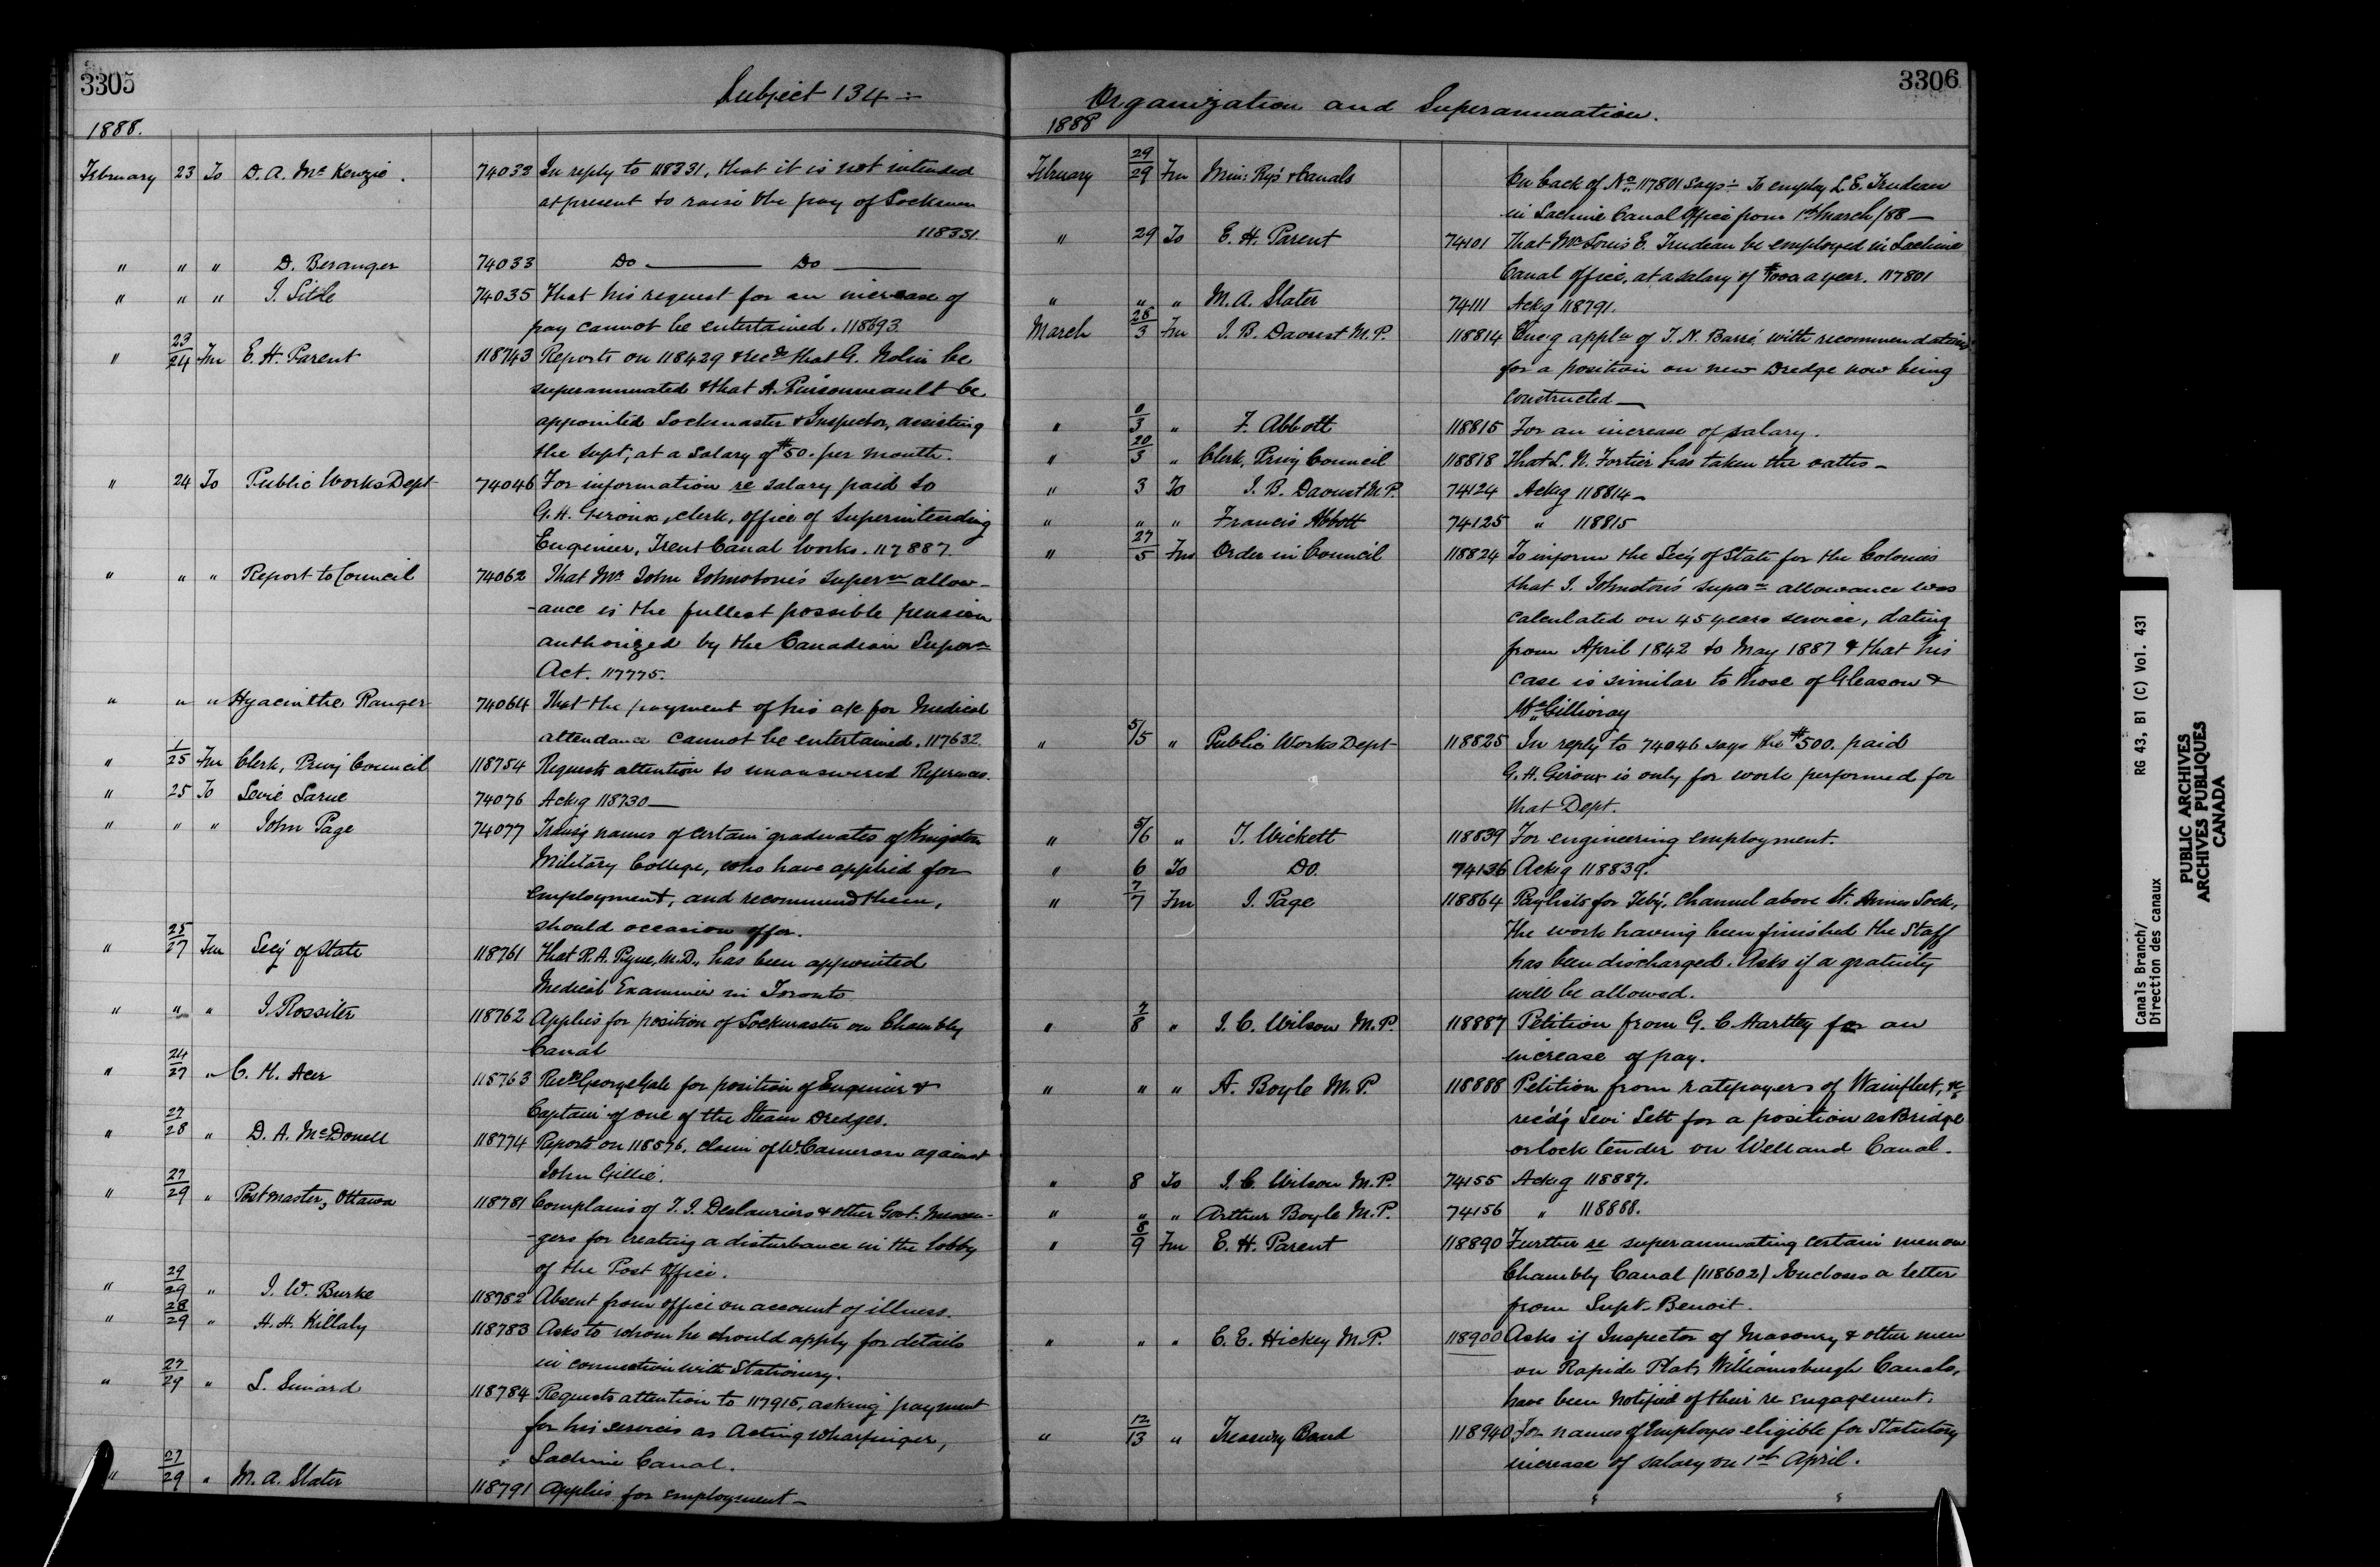 3305
Subject 134 :-
1888.
February 23 To D. A. McKenzie. 74032 In reply to 118331, that it is not intended
at present to raise the pay of Lockmen
118331
" " " D. Beranger 74033 Do ——— Do ———
" " " J. Little 74035 That his request for an increase of
pay cannot be entertained. 118693.
" 23/24 Fm E. H. Parent 118743 Reports on 118429 & recds that G. Nolin be
superannuated & that A. Pinsonneault be
appointed Lockmaster & Inspector, assisting
the supt, at a salary of $50. per month.
" 24 To Public Works Dept 74046 For information re salary paid to
G. H. Giroux, clerk, office of Superintending
Engineer, Trent Canal Works. 117887.
" " " Report to Council 74062 That Mr John Johnstone's superan allow-
-ance is the fullest possible pension
authorized by the Canadian Superan
Act. 117775.
" " " Hyacinthe Ranger 74064 That the payment of his a/c for Medical
attendance cannot be entertained. 117632.
" 1/25 Fm Clerk, Privy Council 118754 Requests attention to unanswered References.
" 25 To Levié Larue 74076 Ackg 118730 —
" " " John Page 74077 Transg names of certain graduates of Kingston
Military College, who have applied for
employment, and recommend them,
should occasion offer.
" 25/27 Fm Secy of State 118761 That R. A. Pyne, M.D., has been appointed
Medical Examiner in Toronto
" " " J. Rossiter 118762 Applies for position of Lockmaster on Chambly
Canal
" 24/27 " C. H. Acer 118763 Recds George Gale for position of Engineer &
Captain of one of the Steam Dredges.
" 27/28 " D. A. McDonell 118774 Reports on 118576, claim of W. Cameron against
John Gillie.
" 27/29 " Postmaster, Ottawa 118781 Complains of T. J. Deslauriers & other Govt. Messen-
-gers for creating a disturbance in the lobby
of the Post Office.
" 29/29 " J. W. Burke 118782 Absent from office on account of illness.
" 28/29 " H. H. Killaly 118783 Asks to whom he should apply for details
in connection with Stationery.
" 27/29 " L. Simard 118784 Requests attention to 117915, asking payment
for his services as Acting Wharfinger,
Lachine Canal.
" 27/29 " M. A. Slater 118791 Applies for employment —
3306
Organization and Superannuation.
1888
February 29/29 Fm Min: Rys & Canals On back of No 117801 says:- To employ L. E. Trudeau
in Lachine Canal Office from 1st March/88 —
" 29 To E. H. Parent 74101 That Mr Louis E. Trudeau be employed in Lachine
Canal office, at a salary of a year. 117801
" " " M. A. Slater 74111 Ackg 118791.
March 28/3 Fm J. B. Daoust M.P. 118814 Encg appln of J. N. Barré with recommendations
for a position on new Dredge now being
constructed —
" 0/3 " F. Abbott 118815 For an increase of salary.
" 20/3 " Clerk, Privy Council 118818 That L. N. Fortier has taken the oaths —
" 3 To J. B. Daoust M.P. 74124 Ackg 118814 —
" " " Francis Abbott 74125 " 118815
" 27/5 Fm Order in Council 118824 To inform the Secy of State for the Colonies
that J. Johnston's superan allowance was
calculated on 45 years service, dating
from April 1842 to May 1887 & that his
case is similar to those of Gleason &
McGillivray
" 5/5 " Public Works Dept 118825 In reply to 74046 says the $500. paid
G. H. Giroux is only for work performed for
that Dept.
" 5/6 " T. Wickett 118839 For engineering employment.
" 6 To Do. 74136 Ackg 118839.
" 7/7 Fm J. Page 118864 Paylists for Feby, Channel above St. Annes Lock,
The work having been finished the Staff
has been discharged. Asks if a gratuity
will be allowed.
" 7/8 " J. C. Wilson M.P. 118887 Petition from G. C. Hartley for an
increase of pay.
" " " A. Boyle M.P. 118888 Petition from ratepayers of Wainfleet, &c
recdg Levi Sett for a position as Bridge
or lock tender on Welland Canal.
" 8 To J. C. Wilson M.P. 74155 Ackg 118887.
" " " Arthur Boyle M.P. 74156 " 118888.
" 8/9 Fm E. H. Parent 118890 Further re superannuating certain men on
Chambly Canal (118602) Encloses a letter
from Supt. Benoit.
" " " C. E. Hickey M.P. 118900 Asks if Inspector of Masonry & other men
on Rapide Plat, Williamsburgh Canals,
have been notified of their re engagement.
" 12/13 " Treasury Board 118940 For names of Employes eligible for Statutory
increase of salary on 1st April.
Canals Branch/ RG 43, B1 (C) Vol. 431
Direction des canaux
PUBLIC ARCHIVES
ARCHIVES PUBLIQUES
CANADA